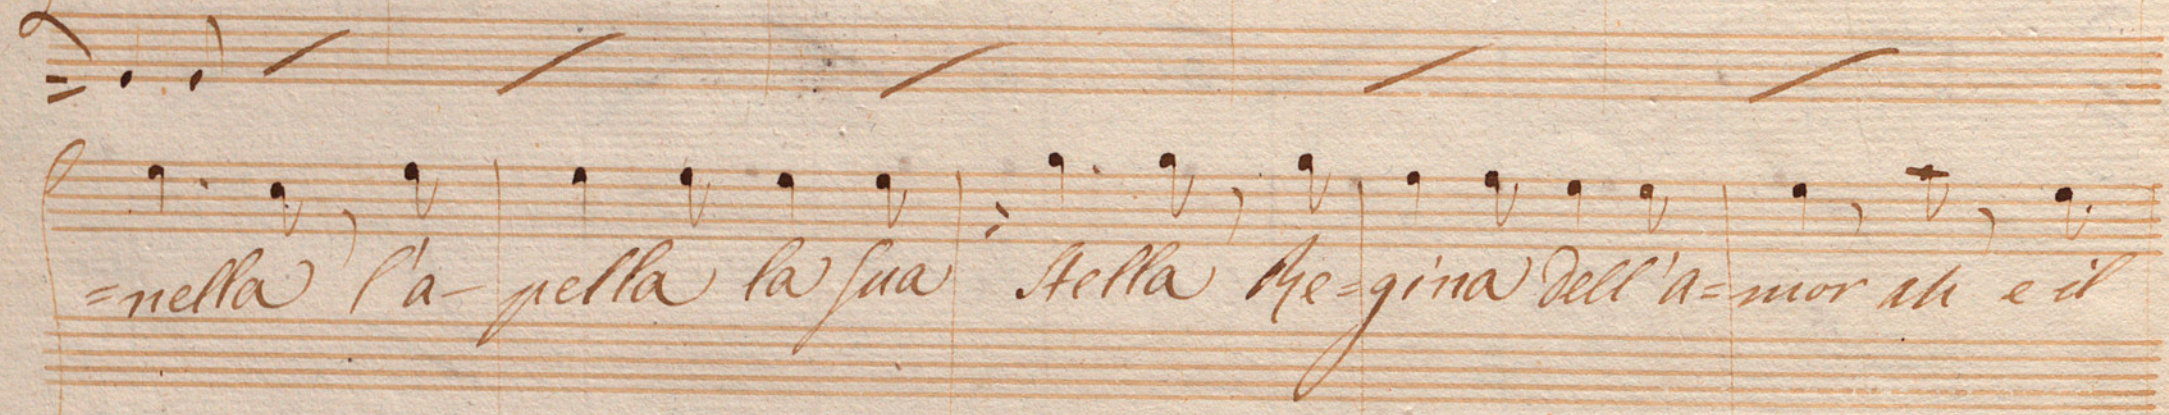 =nella l'a- pella la sua Stella Re=gina dell'a=mor ah e il